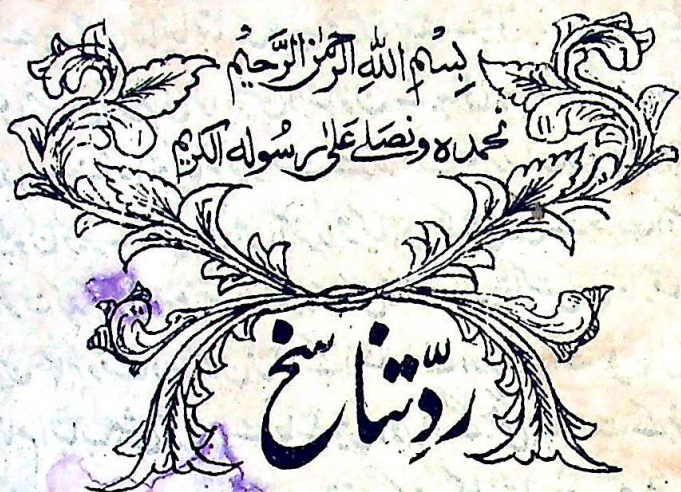 بِسْمِ اللّٰهِ الرَّحْمٰنِ الرَّحِيْمِ
نحمدہ ونصلے علیٰ رسولہ الکریم
ردِّ تناسخ